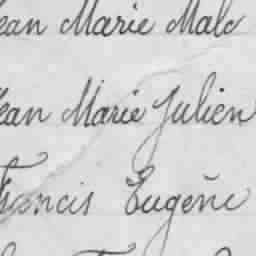 ean Marie Malo
ean Marie Julien
Francis Eugène